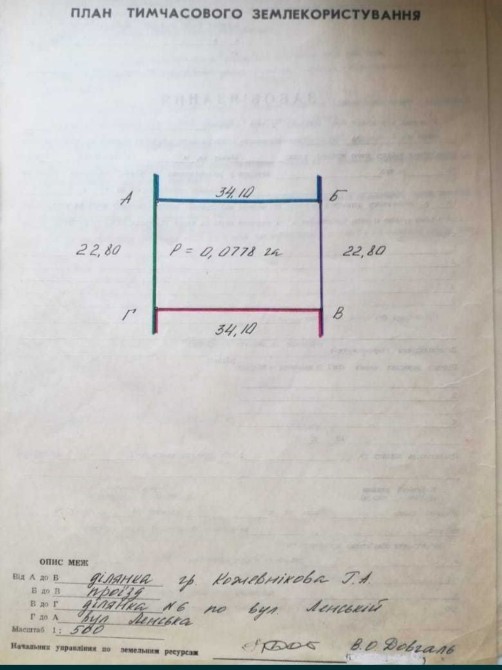 ПЛАН ТИМЧАСОВОГО ЗЕМЛЕКОРИСТУВАННЯ
А 34,10 Б
22,80 Р = 0,0778 га 22,80
Г 34,10 В
ОПИС МЕЖ
Від А до Б ділянка гр Кожевнікова Г.А
Б до В проїзд
В до Г ділянка №6 по вул Ленській
Г до А вул Ленська
Масштаб 1: 500
Начальник управління по земельним ресурсам В.О Довгаль